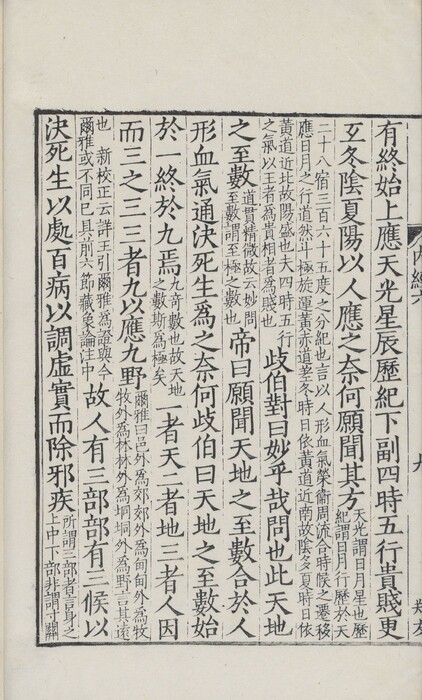 有終始上應天光星辰歷紀下副四時五行貴賤更
互冬陰夏陽以人應之奈何願聞其方
天光謂日月星也歷
紀謂日月行歷於天
二十八宿三百六十五度之分紀也言以人形血氣榮衛周流合時候之遷移
應日月之行道然斗極旋運黃赤道差冬時日依黃道近南故陰多夏時日依
黃道近北故陽盛也夫四時五行
之氣以王者爲貴相者爲賤也
歧伯對曰妙乎哉問也此天地
之至數
道貫精微故云妙問
至數謂至極之數也
帝曰願聞天地之至數合於人
形血氣通決死生爲之奈何歧伯曰天地之至數始
於一終於九焉
九奇數也故天地
之數斯爲極矣
一者天二者地三者人因
而三之三三者九以應九野
爾雅曰邑外爲郊郊外爲甸甸外爲牧
牧外爲林林外爲坰坰外爲野言其遠
也 新校正云詳王引爾雅爲證與今
爾雅或不同已具前六節藏象論注中
故人有三部部有三候以
決死生以處百病以調虛實而除邪疾
所謂三部者言身之
上中下部非謂寸關